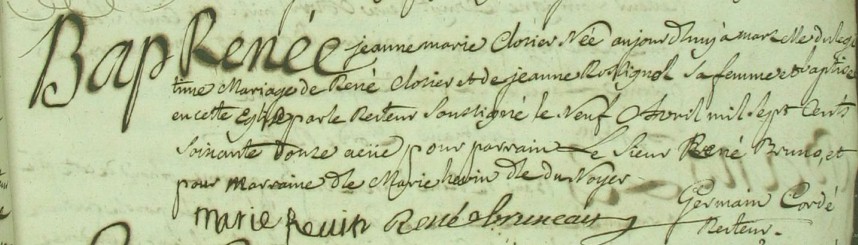 Bap Renée jeanne marie Closier Née aujourd'huy à marzelle du legi
time Mariage de René Closier et de jeanne Rossignol sa femme et baptisée
en cette Eglise par le Recteur soussigné le Neuf Avril mil sept Cents
soixante douze a été pour parrain Le sieur René Bruno, et
pour marraine dlle Marie hevin dlle du Noyer
marie hevin René bruneau Germain Cordé
Recteur.